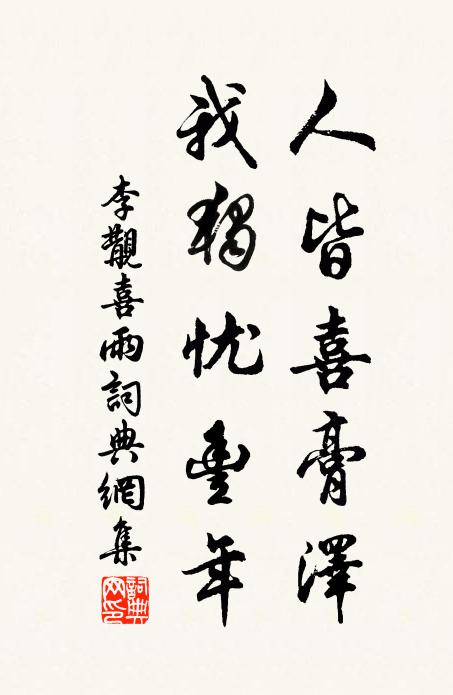 人皆喜膏澤
我獨忧豐年
李覯喜雨詞典網集
詞典
网印